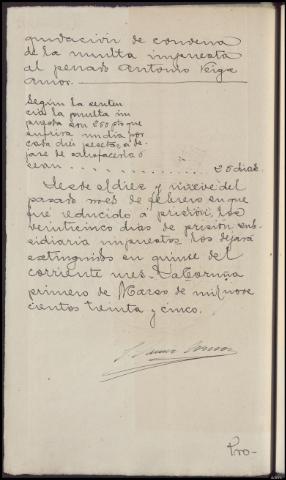 quidación de condena
de la multa impuesta
al penado Antonio Veiga
Amor.
Según la senten
cia la multa im
puesta son 250 pts que
sufrira un dia por
cada diez pesetas q de
jare de satisfacerla ó
sean . . . . . . . . . . 25 dias.
Desde el diez y nueve del
pasado mes de febrero en que
fué reducido a prisión, los
veinticinco dias de prisión sub-
sidiaria impuestos los dejará
extinguidos en quince del
corriente mes. La Coruña
primero de Marzo de mil nove
cientos treinta y cinco.
Pro-